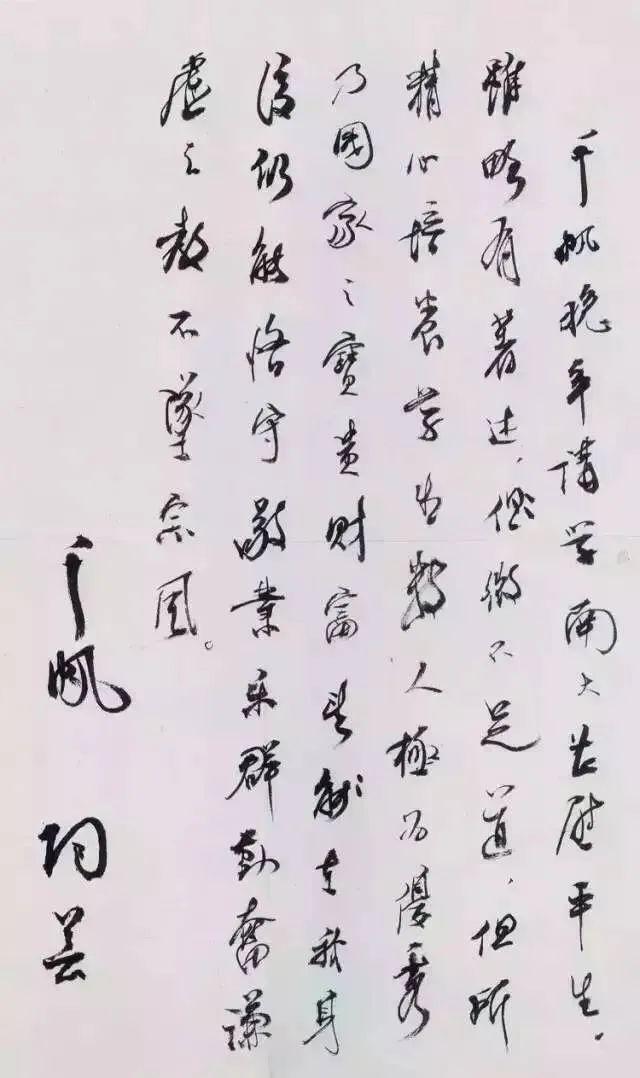 千帆晚年講学南大甚慰平生、
雖略有著述、俱微不足道、但所
精心培养学生数人極为優秀
乃國家之寶貴財富望能在我身
後仍能恪守敬業乐群勤奮謙
虚之教不墜宗風。
千帆 陶芸